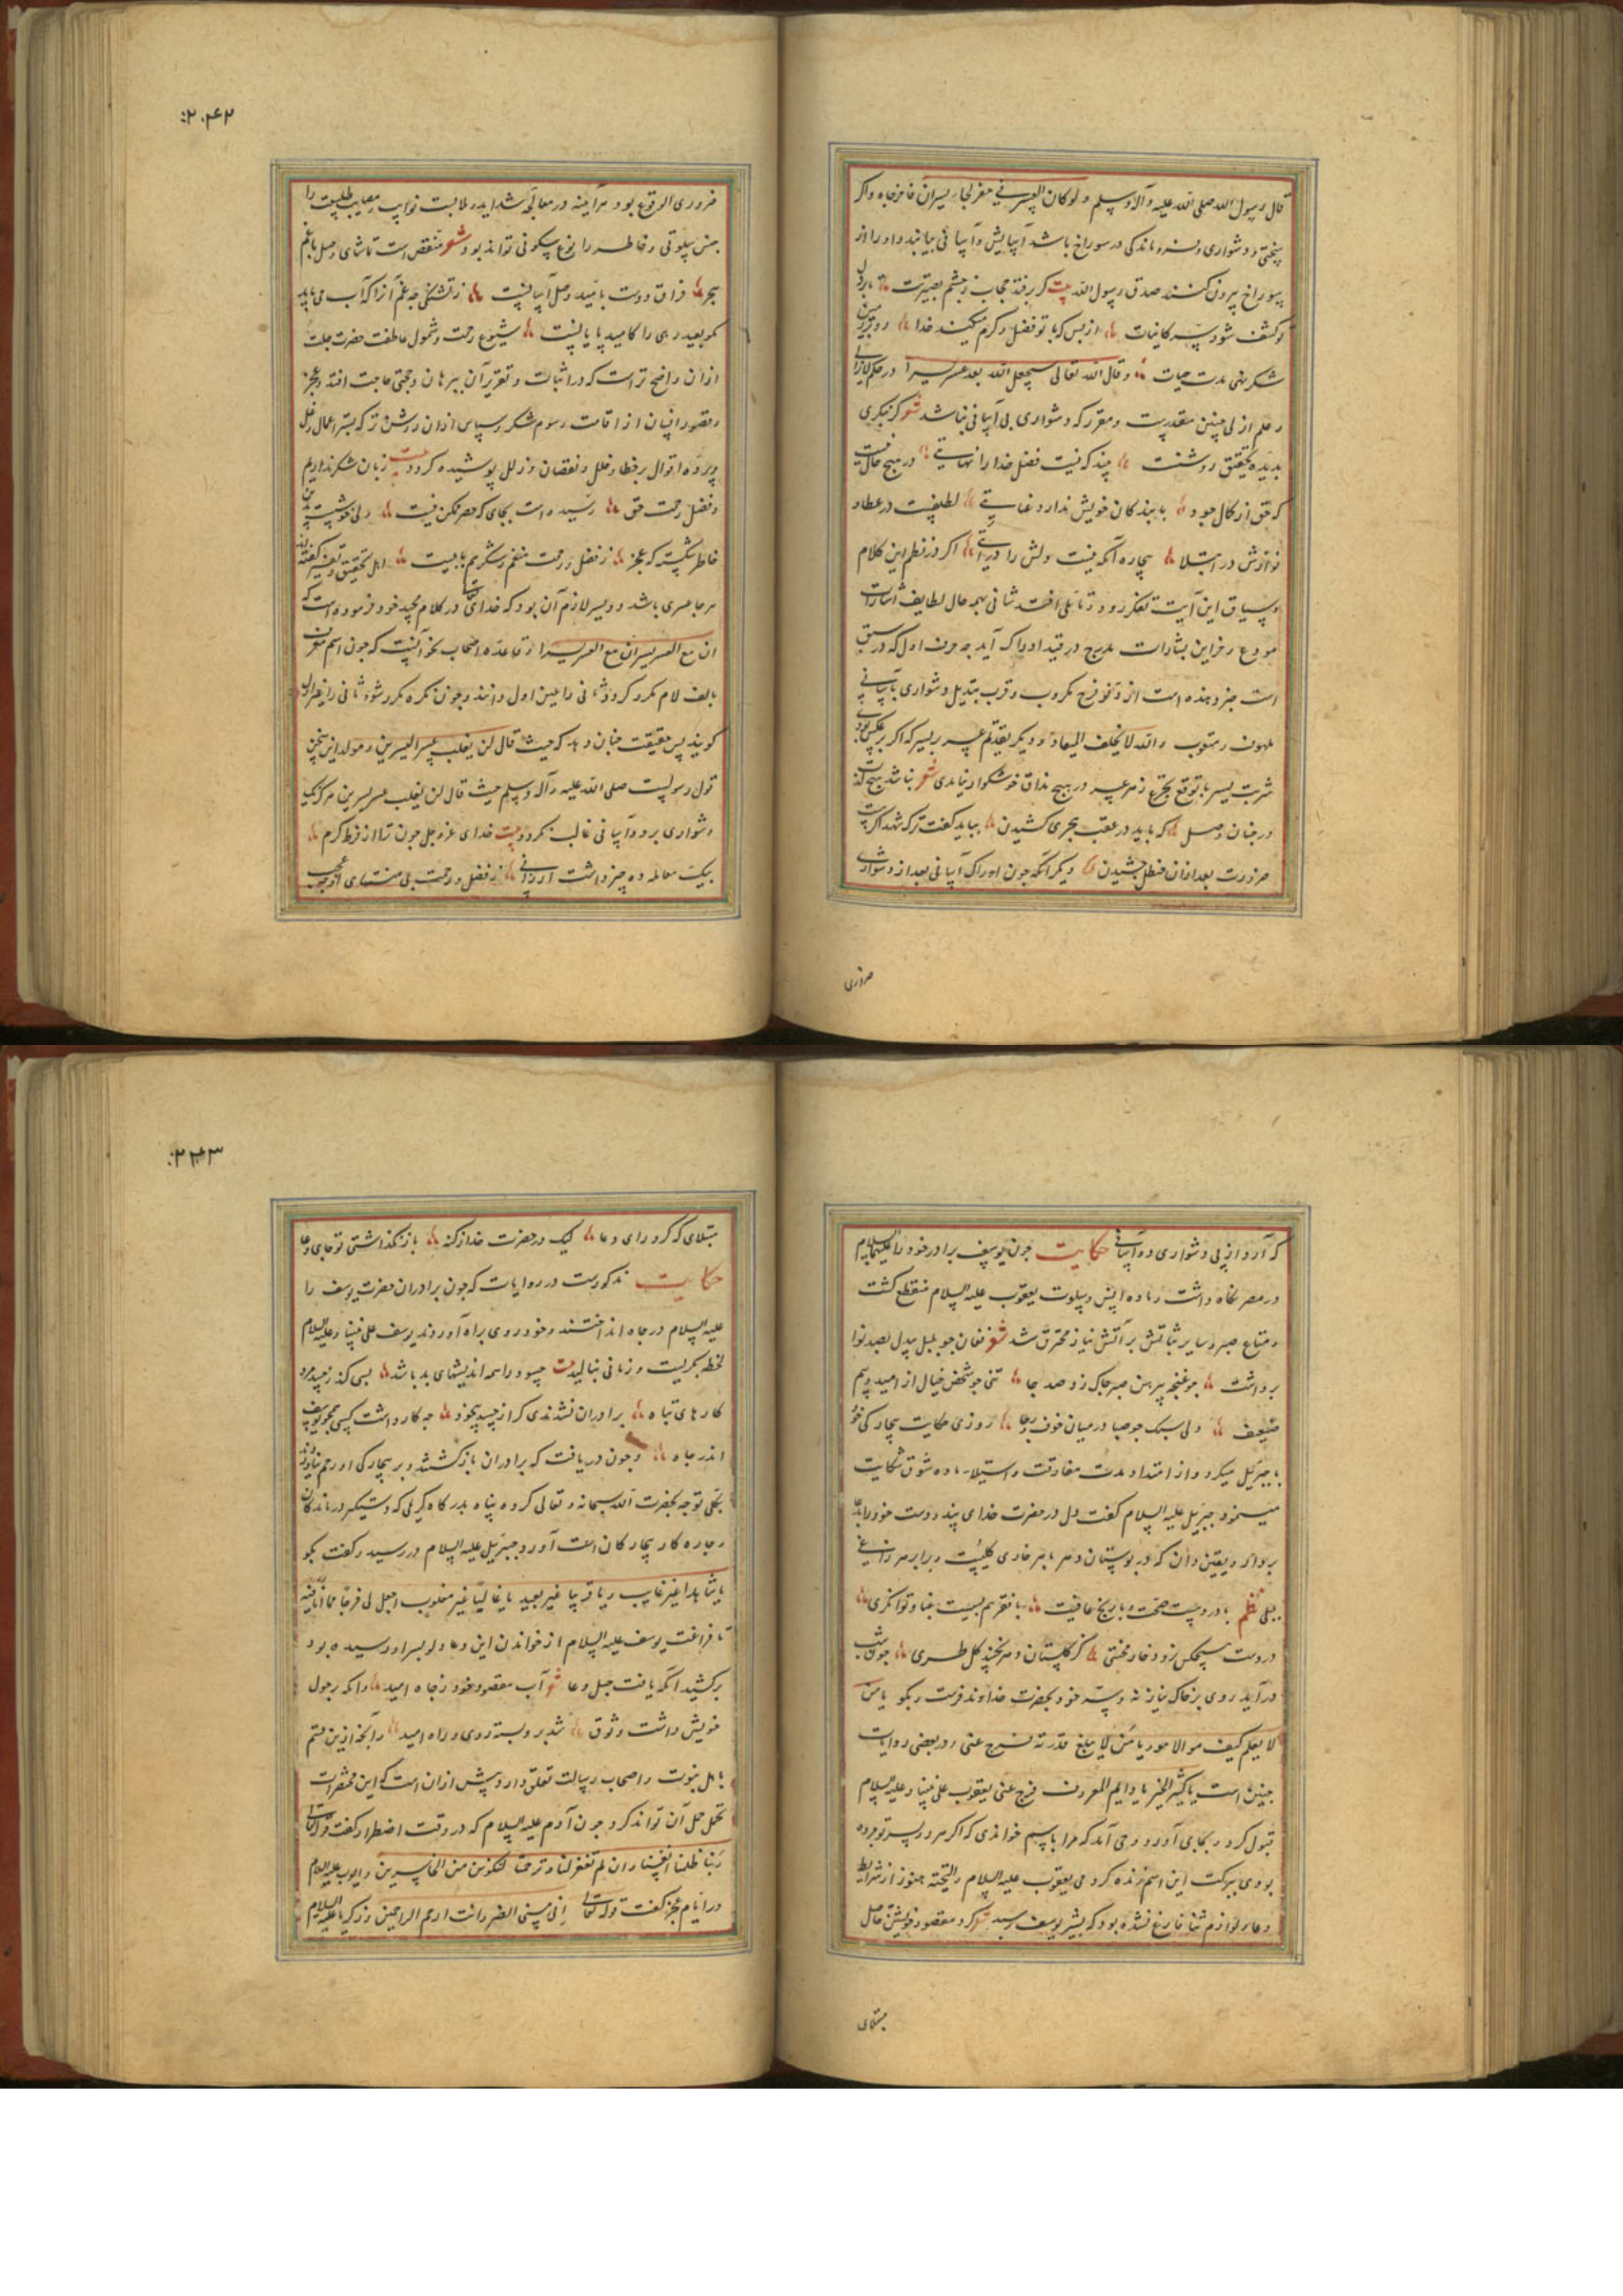 قال رسول الله صلی الله علیه و آله و سلم و لو کان العسر فی جحر لجاء یسران فاخرجاه و اگر
سختی و دشواری و فرو ماندگی در سوراخ باشد آسایش و آسانی بیایند و او را از
سوراخ بیرون کنند صدق رسول الله بیت گر رفته حجاب ز چشم بصیرتت تا بر دل
تو کشف شود سر کاینات از بس که با تو فضل و کرم میکند خدا
شکر نهی مدت حیات و قال الله تعالی سیجعل الله بعد عسر یسرا در حکم لایزالی
و علم ازلی چنین مقدرست و مقرر که دشواری بی آسانی نباشد شعر گر بنگری
بدیده تحقیق روشنست چندکه نیست فضل خدا را نهایتی در هیچ حال نیست
که حق از کمال جود با بندگان خویش ندارد عنایتی لطفیست در عطا و
نوازش در ابتلا بیچاره آنکه نیست ولش را درایتی اگر در نظم این کلام
و سیاق این آیت تفکر رود و تاملی افتد شانی بهمه حال لطایف اشارات
مودع و غراین بشارات مدرج در قید ادراک آید چه حرف اول که در سبق
است خبر دهنده است از دنو فرج مکروب و قرب تبدیل دشواری بآسانی
ملهوف و متوب و الله لا یخلف المیعاد و دیگر تقدیم عسر بر یسر که اگر بر عکس بودی
شربت یسر با توقع تجرع زهر عسر در هیچ مذاق خوشگوار نیامدی شعر نباشد هیچ لذت
در جنان وصل که باید در عقب هجری کشیدن بباید گفت ترک شهد اگر هست
ضرورت بعد ازان حنظل چشیدن و دیگر آنکه چون ادراک آسانی بعد از دشواری
ضروری
۲۴۲
ضروری الوقوع بود هرآینه در معالجه شداید و ملابست نوایب و مصایب طبیعت را
حسن سلوتی و خاطر را نوع سکونی تواند بود شعر منغص است تماشای وصل با غم
هجر فراق دوست بامید وصل آسانیست ز تشنگی چه غم آنرا که آب می یابد
کو بعید رهی را که امید پایانیست شیوع رحمت و شمول عاطفت حضرت جلت
ازان واضح ترست که در اثبات و تقریر آن ببرهان و حجتی حاجت افتد و عجز
و قصور انسان از اقامت رسوم شکر و سپاس ازان روشن تر که بستر اعمال و علل
و پرده اقوال بر خطا و خلل و نقصان و زلل پوشیده گردد بیت زبان شکر نداریم
و فضل رحمت حق رسیده است بجای که حصر ممکن نیست ولی خوشست بدین
خاطر شکسته که عجز ز فضل و رحمت منعم و شکریم بابیست اهل تحقیق و تفسیر گفته اند
هر جا عسری باشد دو یسر لازم آن بود که خدای تعالی در کلام مجید خود فرموده است که
ان مع العسر یسرا ان مع العسر یسرا از قاعده اصحاب نحو آنست که چون اسم معرف
بالف لام مکرر گردد ثانی را عین اول دانند و چون نکره مکرر شود ثانی را غیر اول
گویند پس حقیقت چنان دهد که حیث قال لن یغلب عسر الیسرین و مولد این سخن
قول رسولست صلی الله علیه و آله و سلم حیث قال لن یغلب عسر یسرین هرگز یک
دشواری بر دو آسانی غالب نگردد بیت خدای عز و جل چون ترا از فرط کرم
بیک معامله ده چیز داشت ارزانی ز فضل و رحمت بی منتهای او چه عجب
که آرد از پی دشواری دو آسانی حکایت چون یوسف برادر خود را علیهما السلام
در مصر نگاه داشت و ماده انس و سلوت یعقوب علیه السلام منقطع گشت
و متاع صبر و سایر ثباتش بر آتش نیاز محترق شد شعر فغان چو بلبل بیدل بصد نوا
برداشت چو غنچه پیرهن صبر چاک زد صد جا تنی چو شخص خیال از امید و بیم
ضعیف ولی سبک چو صبا در میان خوف و رجا روزی حکایت بیچارگی خود
با جبرئیل میکرد و از امتداد مدت مفارقت و استیلاء ماده شوق شکایت
مینمود جبرئیل علیه السلام گفت دل در حضرت خدای بند و دست خود را بدعا
بردار و یقین دان که در بوستان دهر با هر خاری گلیست و برابر هر زاغی
بلبلی نظم با درد هست صحت و با رنج عافیت با فقر هم بسیست غنا و توانگری
در دست هیچکس نرود خار محنتی کز گلستان دهر نچیند گل طری چون شب
درآید روی بر خاک نیاز نه و سر خود بحضرت خداوند فرست و بگو یا من
لا یعلم کیف هو الا هو و یا من لا یبلغ قدرته فرج عنی و در بعضی روایات
چنین است یا کثیر الخیر یا دایم المعروف فرج عنی یعقوب علی نبینا و علیه السلام
قبول کرد و بجای آورد وحی آمد که مرا باسم خواندی که اگر هر دو پسر تو مرده
بودی ببرکت این اسم زنده کردمی یعقوب علیه السلام و التحیة هنوز از شرایط
دعا و لوازم ثنا فارغ نشده بود که بشیر یوسف رسید شعر کرد مقصود خویشتن حاصل
مبتلای
۲۴۳
مبتلای که کرد رای دعا لیک در حضرت خدا زگنه باز نگذاشتی تو جای دعا
حکایت مذکورست در روایات که چون برادران حضرت یوسف را
علیه السلام در چاه انداختند و خود روی براه آوردند یوسف علی نبینا و علیه السلام
لحظه بگریست و زمانی بنالید بیت حسود را همه اندیشهای بد باشد بسی کند ز حسد مرد
کارهای تباه برادران نشدندی گر از حسد بیخود چه کار داشت کسی همچو یوسف
اندر چاه و چون دریافت که برادران بازگشتند و بر بیچارگی او رحم نیاوردند
بکلی توجه بحضرت الله سبحانه و تعالی کرده پناه بدرگاه کریمی که دستگیر درماندگان
و چاره کار بیچارگان است آورد جبرئیل علیه السلام در رسید و گفت بگو
یا شاهدا غیر غایب و یا قریبا غیر بعید یا غالبا غیر مغلوب اجعل لی فرجا مما انا فیه
تا فراغت یوسف علیه السلام از خواندن این دعا دلو بسر او رسیده بود
برکشید آنکه یافت حبل دعا شعر آب مقصود خود ز چاه امید وانکه بر حول
خویش داشت وثوق شد برو بسته روی و راه امید و آنچه ازین قسم
باهل نبوت و اصحاب رسالت تعلق دارد بیش ازان است که این مختصرات
تحمل حمل آن تواند کرد چون آدم علیه السلام که در وقت اضطرار گفت قوله تعالی
ربنا ظلمنا انفسنا و ان لم تغفر لنا و ترحمنا لنکونن من الخاسرین و ایوب علیه السلام
در ایام عجز گفت قوله تعالی انی مسنی الضر و انت ارحم الراحمین و زکریا علیه السلام